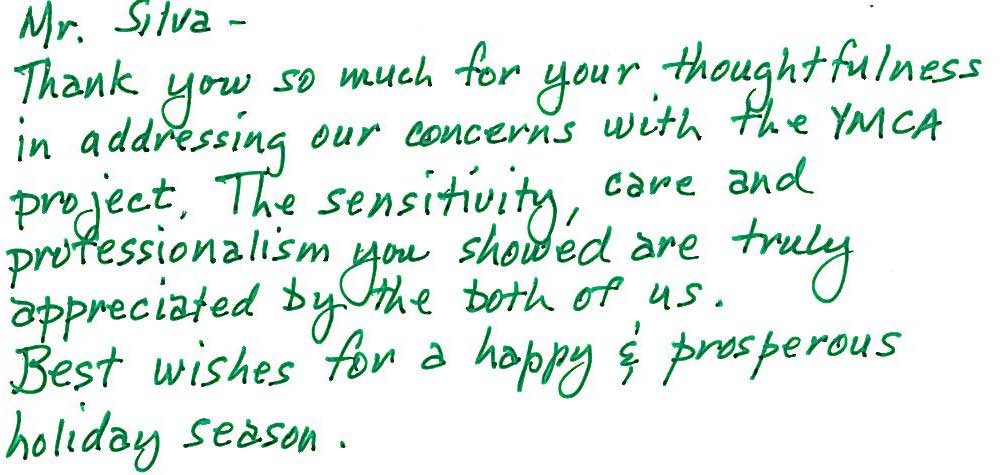 Mr. Silva -
Thank you so much for your thoughtfulness
in addressing our concerns with the YMCA
project. The sensitivity, care and
professionalism you showed are truly
appreciated by the both of us.
Best wishes for a happy & prosperous
holiday season.